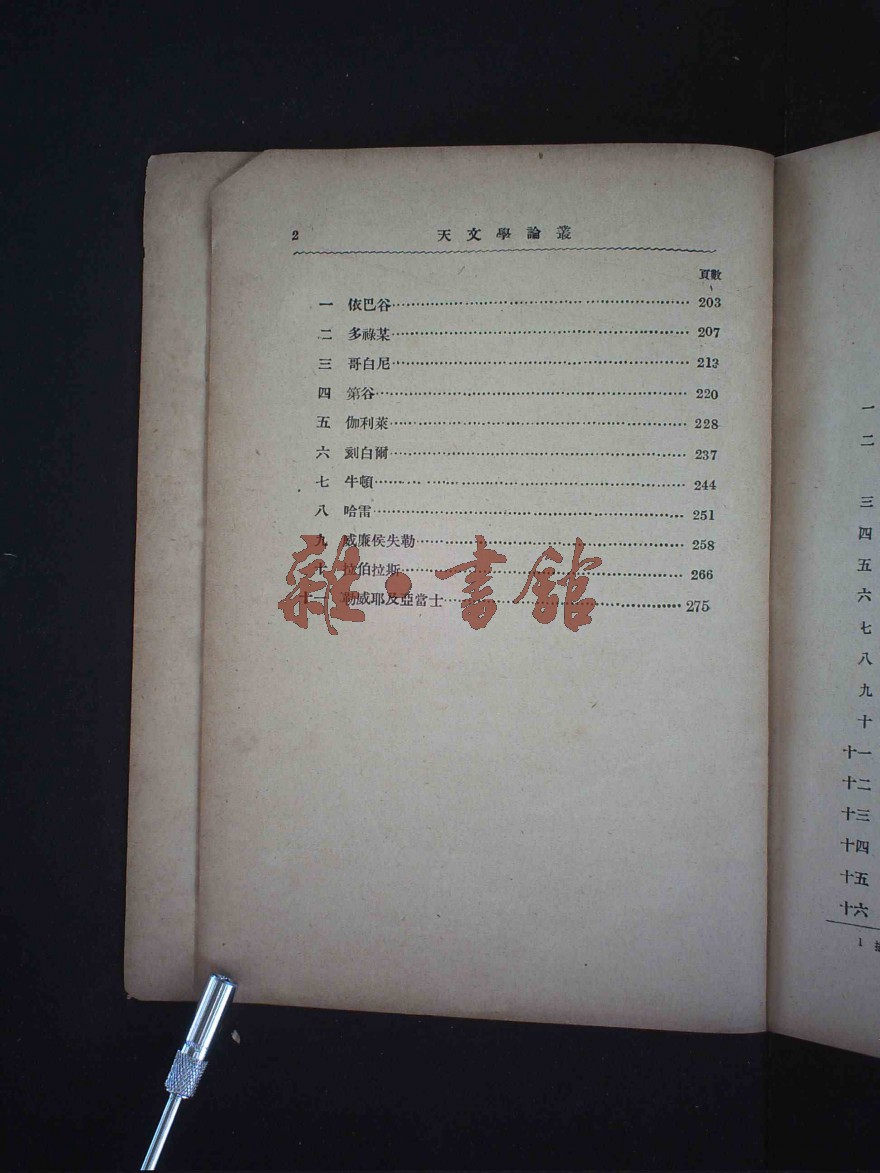 2 天文學論叢
頁數
一 依巴谷 203
二 多祿某 207
三 哥白尼 213
四 第谷 220
五 伽利萊 228
六 刻白爾 237
七 牛頓 244
八 哈雷 251
九 威廉侯失勒 258
十 拉伯拉斯 266
十一 勒威耶及亞當士 275
雜·書館
一
二
三
四
五
六
七
八
九
十
十一
十二
十三
十四
十五
十六
1